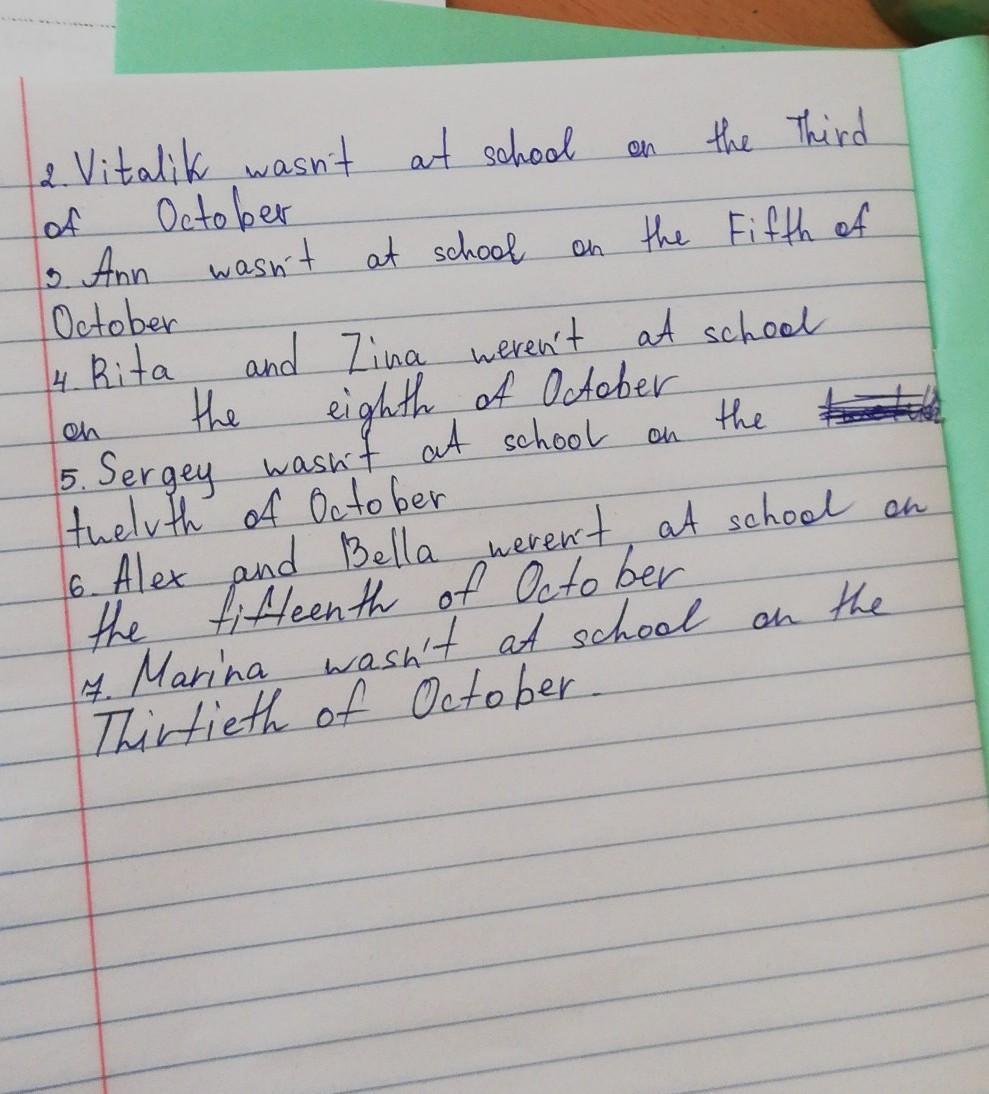 2. Vitalik wasn't at school on the Third
of October
3. Ann wasn't at school on the Fifth of
October
4. Rita and Zina weren't at school
on the eighth of October
5. Sergey wasn't at school on the
twelvth of October
6. Alex and Bella weren't at school on
the fifteenth of October
7. Marina wasn't at school on the
Thirtieth of October.